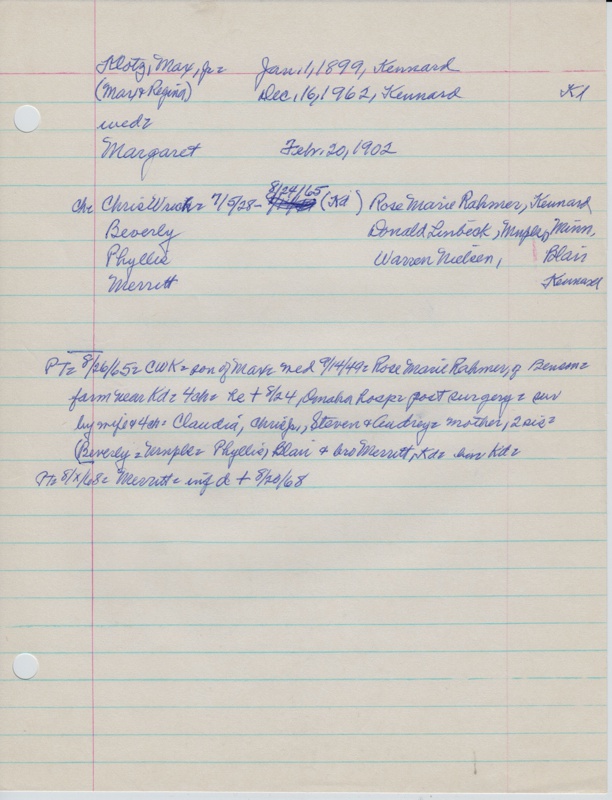 Klotz, Max, Jr = Jan. 1, 1899, Kennard
(Max & Regina) Dec. 16, 1962, Kennard Kd
wed =
Margaret Febr. 20, 1902
8/24/65
ch = Chris = 7/5/28 - (Kd) Rose Marie Rahmer, Kennard
Beverly Donald Linbeck, Mnpls, Minn,
Phyllis Warren Nielsen, Blair
Merritt Kennard
PT = 8/26/65 = CWK = son of Max = wed 9/14/49 = Rose Marie Rahmer, of Benson =
farm near Kd = 4 ch = he + 8/24, Omaha hosp = post surgery = sur
by wife & 4 ch = Claudia, Chris jr, Steven & Audrey = mother, 2 sis =
(Beverly = Mnpls = Phyllis, Blair & bro Merritt, Kd = bur Kd =
PT = 8/X/68 = Merritt = inf d + 8/20/68